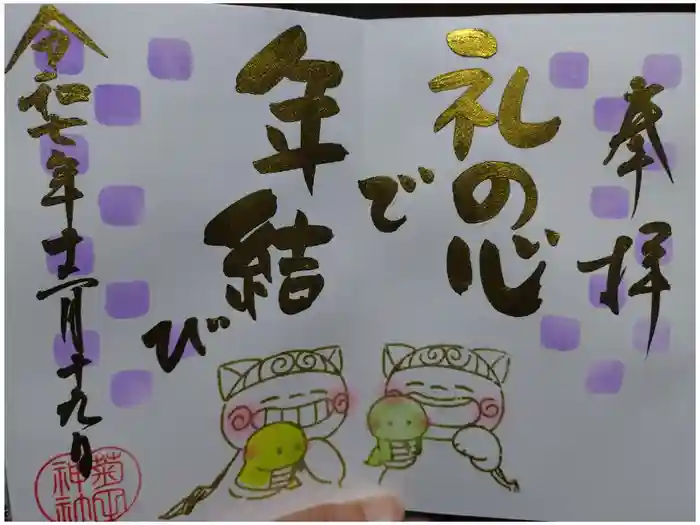 奉拝
礼の心
で
年結び
令和七年十二月十九日
菊田
神社